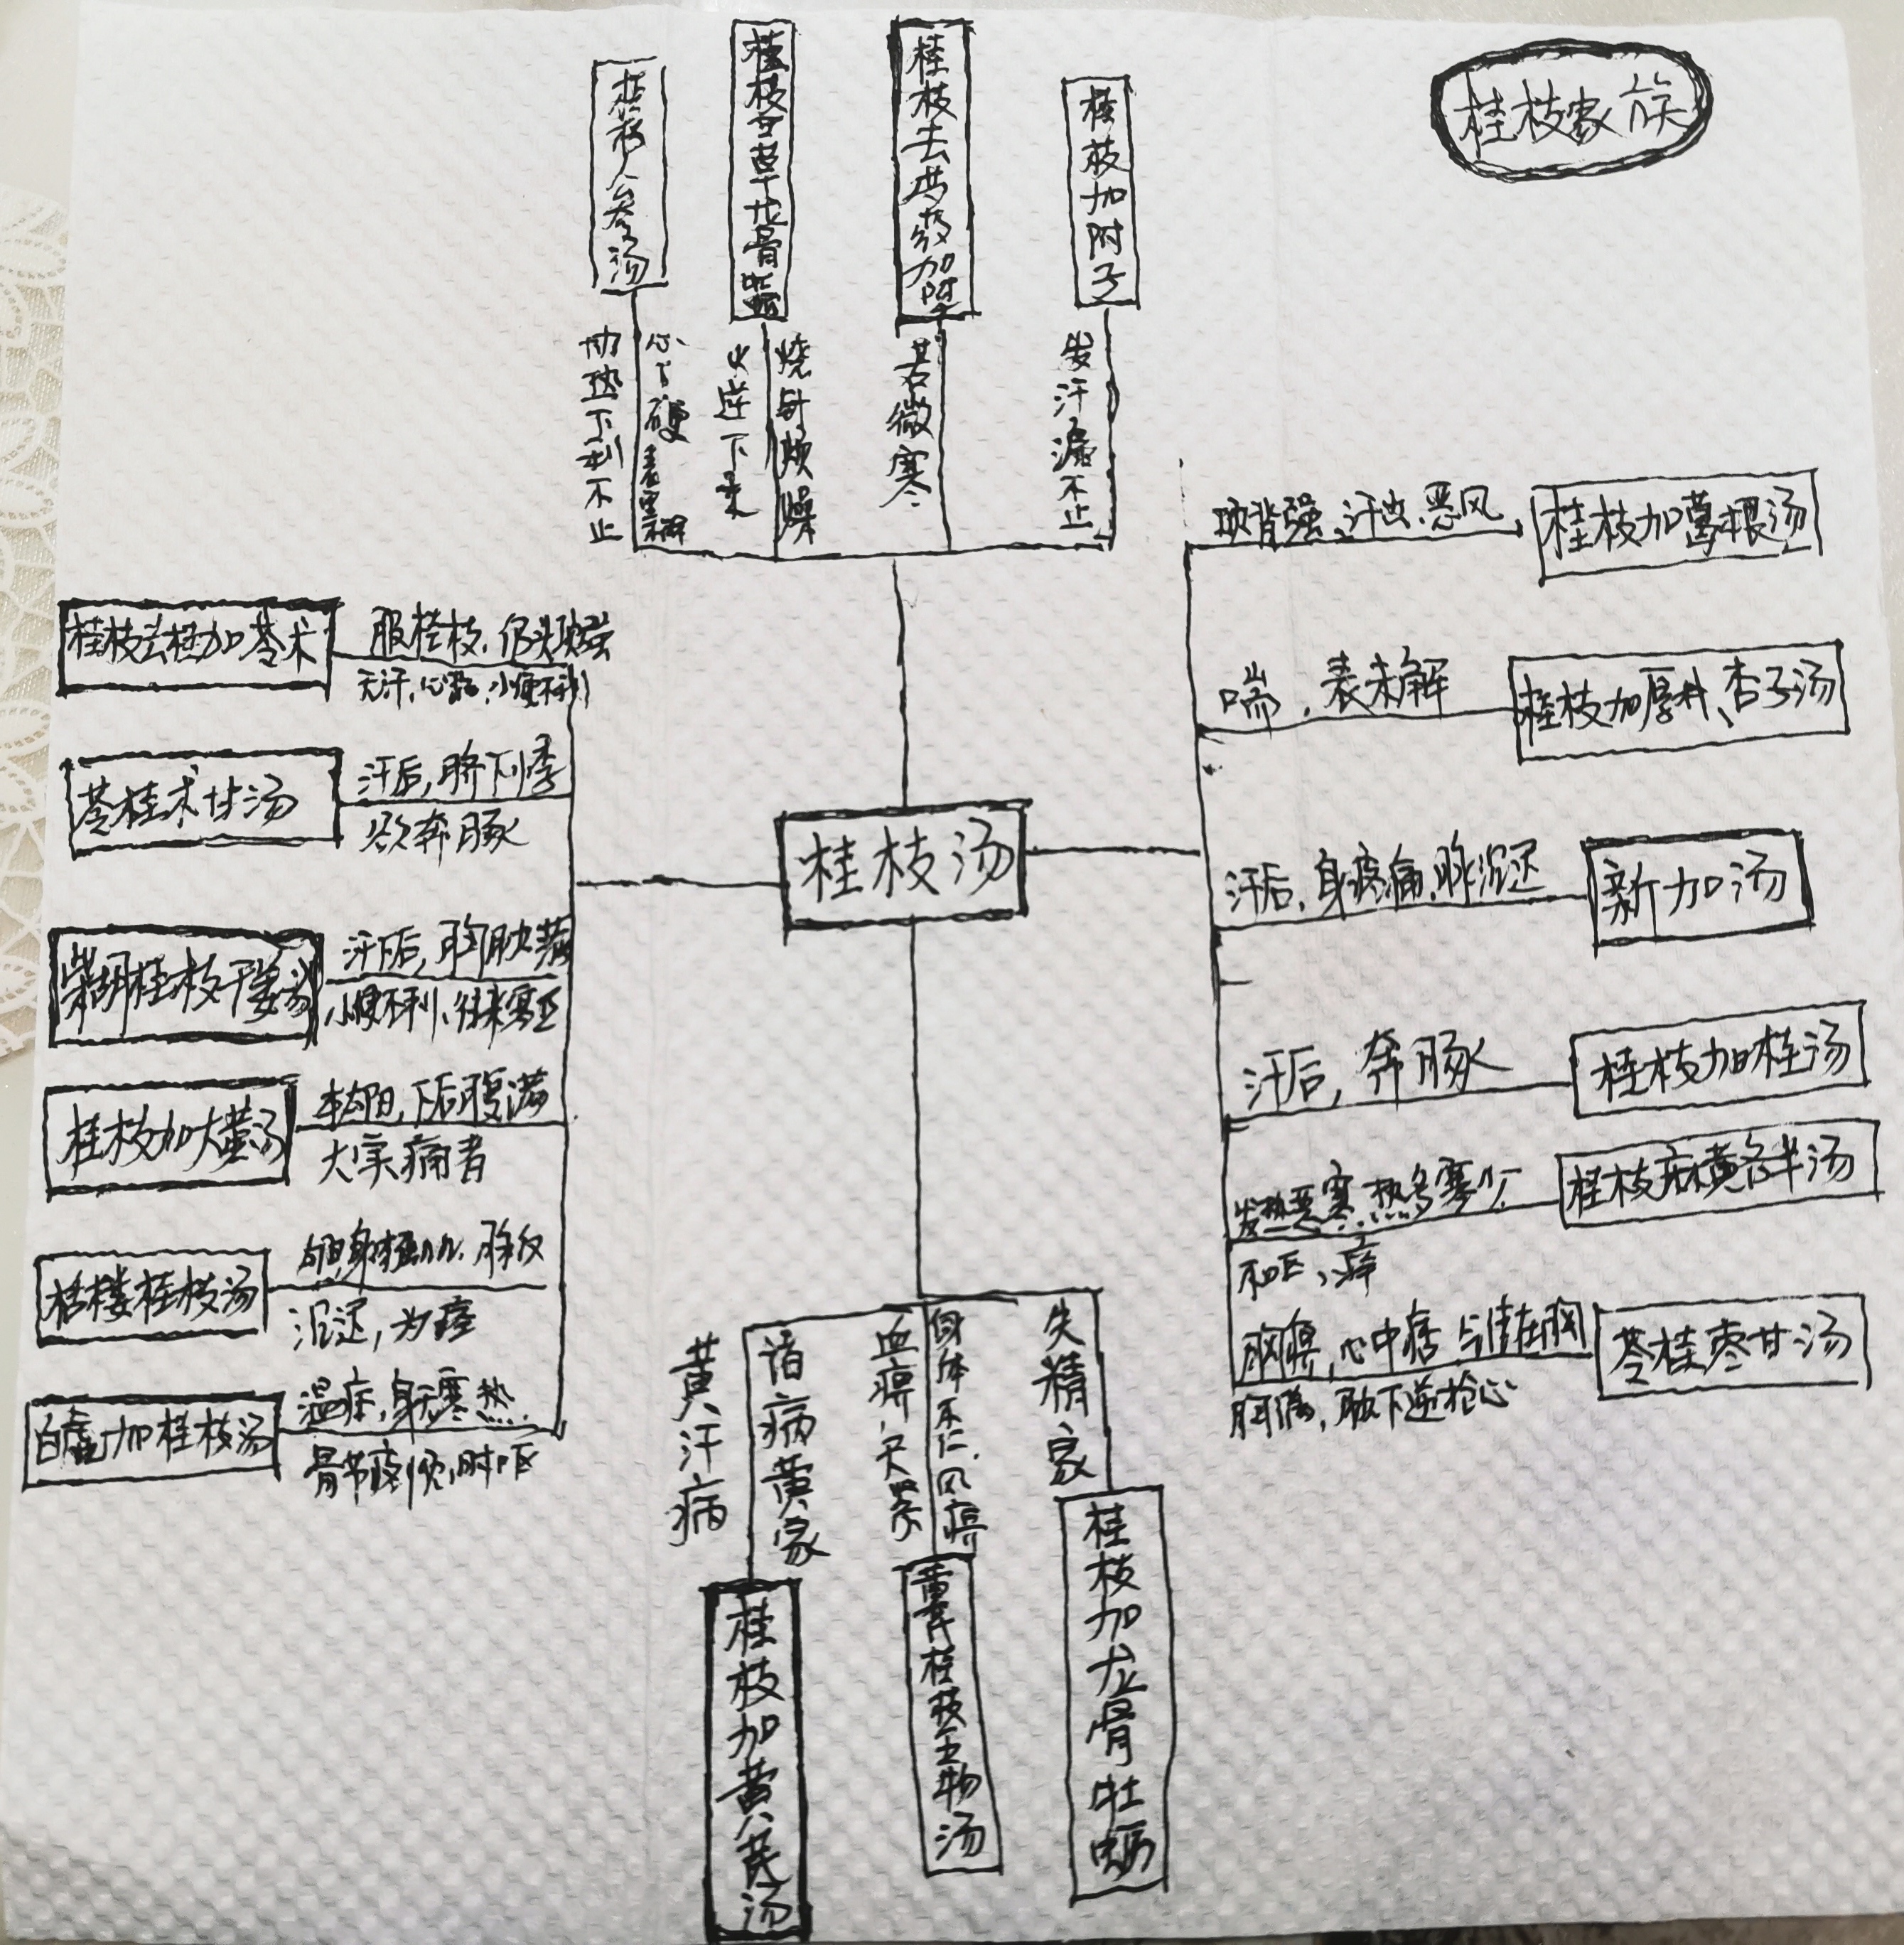 桂枝家族
桂枝人参汤
协热下利不止
心下硬
表里不解
桂枝甘草龙骨牡蛎
火逆下之
烧针烦燥
桂枝去芍药加附
若微寒
桂枝加附子
发汗漏不止
项背强、汗出、恶风、
桂枝加葛根汤
喘、表未解
桂枝加厚朴、杏子汤
汗后、身疼痛、脉沉迟
新加汤
汗后,奔豚
桂枝加桂汤
发热恶寒、热多寒少
桂枝麻黄各半汤
不呕、痒
胸痹,心中痞
胸满,胁下逆抢心
苓桂枣甘汤
桂枝汤
桂枝去桂加苓术
服桂枝、仍头项强
无汗、心满、小便不利
苓桂术甘汤
汗后,脐下悸
欲奔豚
柴胡桂枝干姜汤
汗下后,胸胁满
小便不利、往来寒
桂枝加大黄汤
本太阳,下后腹满
大实痛者
栝楼桂枝汤
身强几几、脉反
沉迟,为痉
白虎加桂枝汤
温疟,身无寒热、
骨节疼烦,时呕
黄汗病
诸病黄家
桂枝加黄芪汤
血痹尺紧
身体不仁、风痹
黄芪桂枝五物汤
失精家
桂枝加龙骨牡蛎